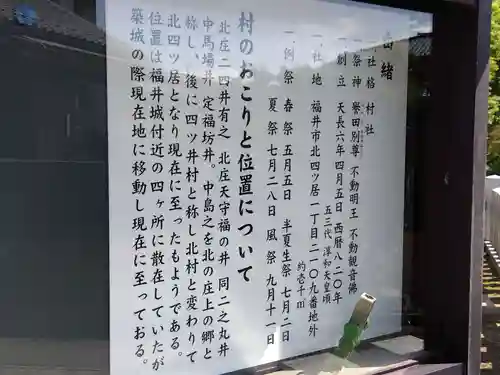 由緒
神社格 村社
一祭神 誉田別尊 不動明王 不動観音佛
一創立 天長六年四月五日 西暦八二〇年
五三代 淳和天皇頃
約壱千㎡
一社地 福井市北四ツ居一丁目二一〇九番地外
一例祭 春祭 五月五日 半夏生祭 七月二日
夏祭 七月二八日 風祭 九月十一日
村のおこりと位置について
北庄二四井有之 北庄天守福の井 同二之丸井
中馬場井 定福坊井。中島之を北の庄上の郷と
称し、後に四ツ井村と称し北村と変わりて
北四ツ居となり現在に至ったもようである。
位置は福井城付近の四ヶ所に散在していたが
築城の際現在地に移動し現在に至っておる。